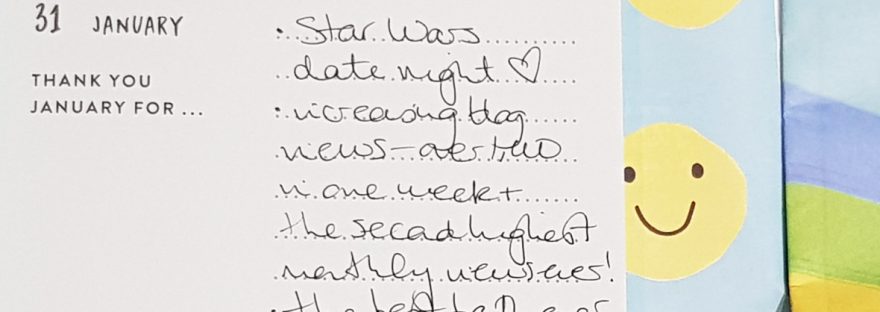 31 JANUARY
THANK YOU
JANUARY FOR ...
• Star Wars
date night ♡
• increasing blog
views – over 1,000
in one week +
the second highest
monthly views ever!